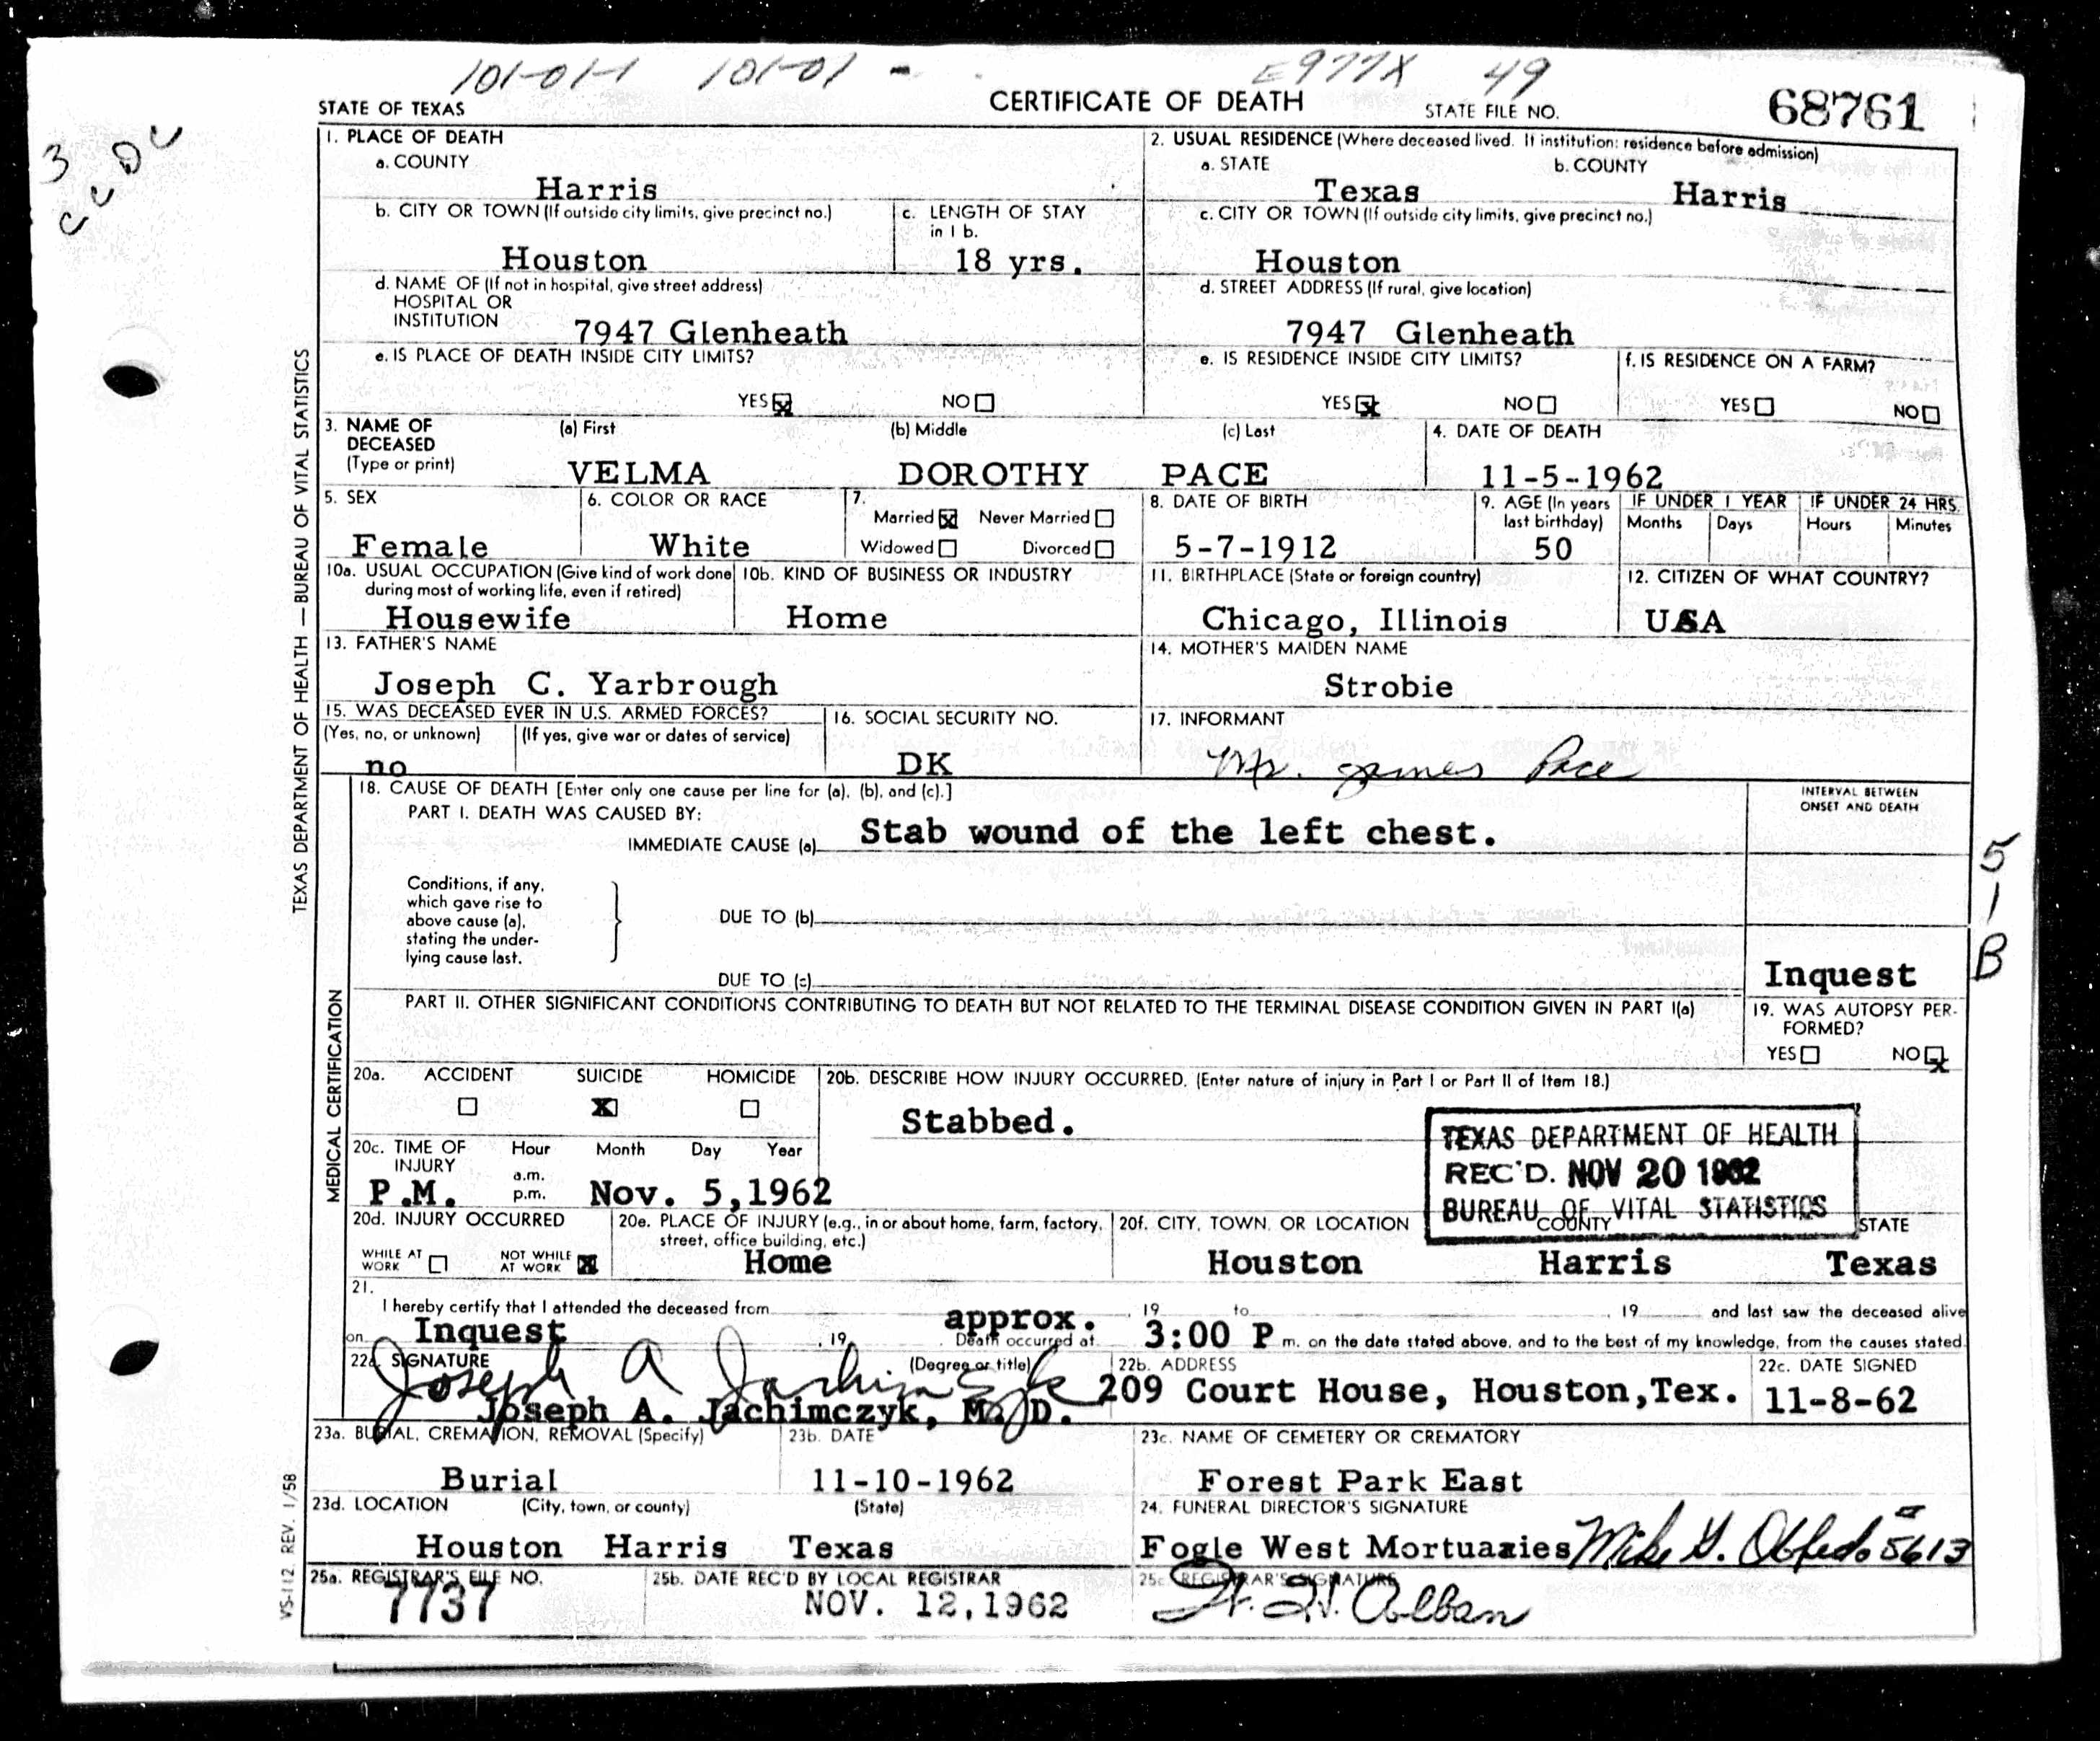 101-01-1 101-01 - E977X 49
STATE OF TEXAS CERTIFICATE OF DEATH STATE FILE NO. 68761
1. PLACE OF DEATH 2. USUAL RESIDENCE (Where deceased lived. If institution: residence before admission)
a. COUNTY Harris a. STATE Texas b. COUNTY Harris
b. CITY OR TOWN (If outside city limits, give precinct no.) c. LENGTH OF STAY in 1 b. c. CITY OR TOWN (If outside city limits, give precinct no.)
Houston 18 yrs. Houston
d. NAME OF (If not in hospital, give street address) d. STREET ADDRESS (If rural, give location)
HOSPITAL OR
INSTITUTION 7947 Glenheath 7947 Glenheath
e. IS PLACE OF DEATH INSIDE CITY LIMITS? e. IS RESIDENCE INSIDE CITY LIMITS? f. IS RESIDENCE ON A FARM?
YES X NO YES X NO YES NO
3. NAME OF DECEASED (Type or print) (a) First (b) Middle (c) Last 4. DATE OF DEATH
VELMA DOROTHY PACE 11-5-1962
5. SEX 6. COLOR OR RACE 7. 8. DATE OF BIRTH 9. AGE (In years last birthday) IF UNDER 1 YEAR IF UNDER 24 HRS.
Married X Never Married Months Days Hours Minutes
Female White Widowed Divorced 5-7-1912 50
10a. USUAL OCCUPATION (Give kind of work done during most of working life, even if retired) 10b. KIND OF BUSINESS OR INDUSTRY 11. BIRTHPLACE (State or foreign country) 12. CITIZEN OF WHAT COUNTRY?
Housewife Home Chicago, Illinois USA
13. FATHER'S NAME 14. MOTHER'S MAIDEN NAME
Joseph C. Yarbrough Strobie
15. WAS DECEASED EVER IN U.S. ARMED FORCES? 16. SOCIAL SECURITY NO. 17. INFORMANT
(Yes, no, or unknown) (If yes, give war or dates of service)
no DK Mr. James Pace
18. CAUSE OF DEATH [Enter only one cause per line for (a), (b), and (c).] INTERVAL BETWEEN ONSET AND DEATH
PART I. DEATH WAS CAUSED BY:
IMMEDIATE CAUSE (a) Stab wound of the left chest.
Conditions, if any,
which gave rise to
above cause (a), DUE TO (b)
stating the under-
lying cause last.
DUE TO (c) Inquest
PART II. OTHER SIGNIFICANT CONDITIONS CONTRIBUTING TO DEATH BUT NOT RELATED TO THE TERMINAL DISEASE CONDITION GIVEN IN PART I(a) 19. WAS AUTOPSY PER-
FORMED?
YES NO X
20a. ACCIDENT SUICIDE HOMICIDE 20b. DESCRIBE HOW INJURY OCCURRED. (Enter nature of injury in Part I or Part II of Item 18.)
X Stabbed.
20c. TIME OF INJURY Hour Month Day Year
a.m.
P.M. p.m. Nov. 5,1962
TEXAS DEPARTMENT OF HEALTH
REC'D. NOV 20 1962
BUREAU OF VITAL STATISTICS
20d. INJURY OCCURRED 20e. PLACE OF INJURY (e.g., in or about home, farm, factory, street, office building, etc.) 20f. CITY, TOWN, OR LOCATION COUNTY STATE
WHILE AT WORK NOT WHILE AT WORK X Home Houston Harris Texas
21.
I hereby certify that I attended the deceased from approx. , 19 to , 19 and last saw the deceased alive
on Inquest , 19 . Death occurred at 3:00 P m. on the date stated above, and to the best of my knowledge, from the causes stated.
22a. SIGNATURE (Degree or title) 22b. ADDRESS 22c. DATE SIGNED
Joseph A Jachimczyk 209 Court House, Houston,Tex. 11-8-62
Joseph A. Jachimczyk, M. D.
23a. BURIAL, CREMATION, REMOVAL (Specify) 23b. DATE 23c. NAME OF CEMETERY OR CREMATORY
Burial 11-10-1962 Forest Park East
23d. LOCATION (City, town, or county) (State) 24. FUNERAL DIRECTOR'S SIGNATURE
Houston Harris Texas Fogle West Mortuaries Mike G. 5613
25a. REGISTRAR'S FILE NO. 25b. DATE REC'D BY LOCAL REGISTRAR 25c. REGISTRAR'S SIGNATURE
7737 NOV. 12,1962 Alban
TEXAS DEPARTMENT OF HEALTH — BUREAU OF VITAL STATISTICS
MEDICAL CERTIFICATION
VS-112 REV. 1/58
5
1
B
3